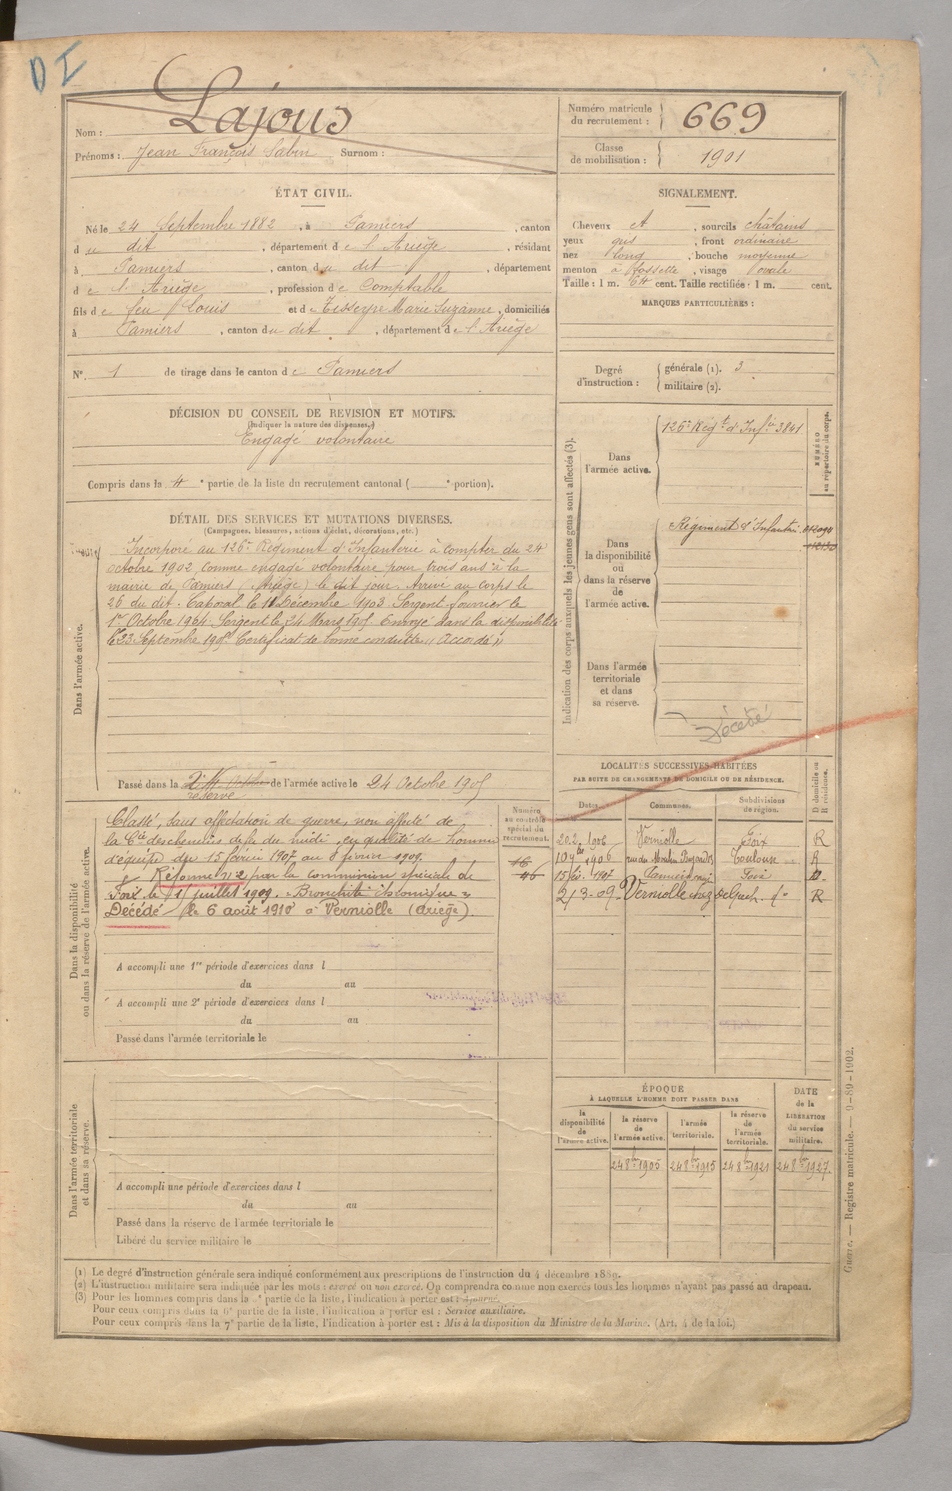 D I
Nom : Lajous
Prénoms : Jean François Sabin Surnom :
Numéro matricule du recrutement : 669
Classe de mobilisation : 1901
ÉTAT CIVIL.
Né le 24 Septembre 1882, à Pamiers, canton
du dit, département de l'Ariège, résidant
à Pamiers, canton du dit, département
de l'Ariège, profession de Comptable
fils de feu Louis et de Tisseyre Marie Suzanne, domiciliés
à Pamiers, canton du dit, département de l'Ariège
N° 1 de tirage dans le canton de Pamiers
SIGNALEMENT.
Cheveux et, sourcils châtains
yeux gris, front ordinaire
nez long, bouche moyenne
menton à fossette, visage ovale
Taille : 1 m. 64 cent. Taille rectifiée : 1 m. cent.
MARQUES PARTICULIÈRES :
Degré d'instruction : générale (1). 3
militaire (2).
DÉCISION DU CONSEIL DE REVISION ET MOTIFS.
(Indiquer la nature des dispenses.)
Engagé volontaire
Compris dans la 4e partie de la liste du recrutement cantonal ( e portion).
DÉTAIL DES SERVICES ET MUTATIONS DIVERSES.
(Campagnes, blessures, actions d'éclat, décorations, etc.)
Dans l'armée active.
Incorporé au 126e Régiment d'Infanterie à compter du 24
octobre 1902 comme engagé volontaire pour trois ans à la
mairie de Pamiers (Ariège) le dit jour. Arrivé au corps le
26 du dit. Caporal le 11 Décembre 1903. Sergent fourrier le
1er Octobre 1904. Sergent le 24 Mars 1905. Envoyé dans la disponibilité
le 23 Septembre 1905. Certificat de bonne conduite " Accordé "
Passé dans la réserve de l'armée active le 24 Octobre 1905
Indication des corps auxquels les jeunes gens sont affectés (3).
NUMÉRO au répertoire du corps.
Dans l'armée active.
126e Régt d'Infie 3841
Dans la disponibilité ou dans la réserve de l'armée active.
Régiment d'Infanterie
Dans l'armée territoriale et dans sa réserve.
Décédé
Dans la disponibilité ou dans la réserve de l'armée active.
Numéro au contrôle spécial du recrutement.
Classé, sans affectation de guerre, non affecté de
la Cie des chemins de fer du midi, en qualité de homme
d'équipe du 15 février 1907 au 8 février 1909.
Réformé n° 2 par la commission spéciale de
Foix le 11 juillet 1909. "Bronchite chronique"
Décédé le 6 août 1910 à Verniolle (Ariège).
46
46
A accompli une 1re période d'exercices dans l
du au
A accompli une 2e période d'exercices dans l
du au
Passé dans l'armée territoriale le
LOCALITÉS SUCCESSIVES HABITÉES
PAR SUITE DE CHANGEMENTS DE DOMICILE OU DE RÉSIDENCE.
Dates. Communes. Subdivisions de région. D domicile ou R résidence.
20 2 1906 Verniolle Foix R
10 9bre 1906 Toulouse
15 fév. 1907 Foix D
2/3-09 Verniolle R
Dans l'armée territoriale et dans sa réserve.
A accompli une période d'exercices dans l
du au
Passé dans la réserve de l'armée territoriale le
Libéré du service militaire le
ÉPOQUE
À LAQUELLE L'HOMME DOIT PASSER DANS
la disponibilité de l'armée active.
la réserve de l'armée active.
l'armée territoriale.
la réserve de l'armée territoriale.
DATE de la LIBÉRATION du service militaire.
24 8bre 1905 24 8bre 1915 24 8bre 1921 24 8bre 1927
(1) Le degré d'instruction générale sera indiqué conformément aux prescriptions de l'instruction du 4 décembre 1889.
(2) L'instruction militaire sera indiquée par les mots : exercé ou non exercé. On comprendra comme non exercés tous les hommes n'ayant pas passé au drapeau.
(3) Pour les hommes compris dans la e partie de la liste, l'indication à porter est : Ajourné.
Pour ceux compris dans la 6e partie de la liste, l'indication à porter est : Service auxiliaire.
Pour ceux compris dans la 7e partie de la liste, l'indication à porter est : Mis à la disposition du Ministre de la Marine. (Art. 4 de la loi.)
Registre matricule. — 9-89-1902.